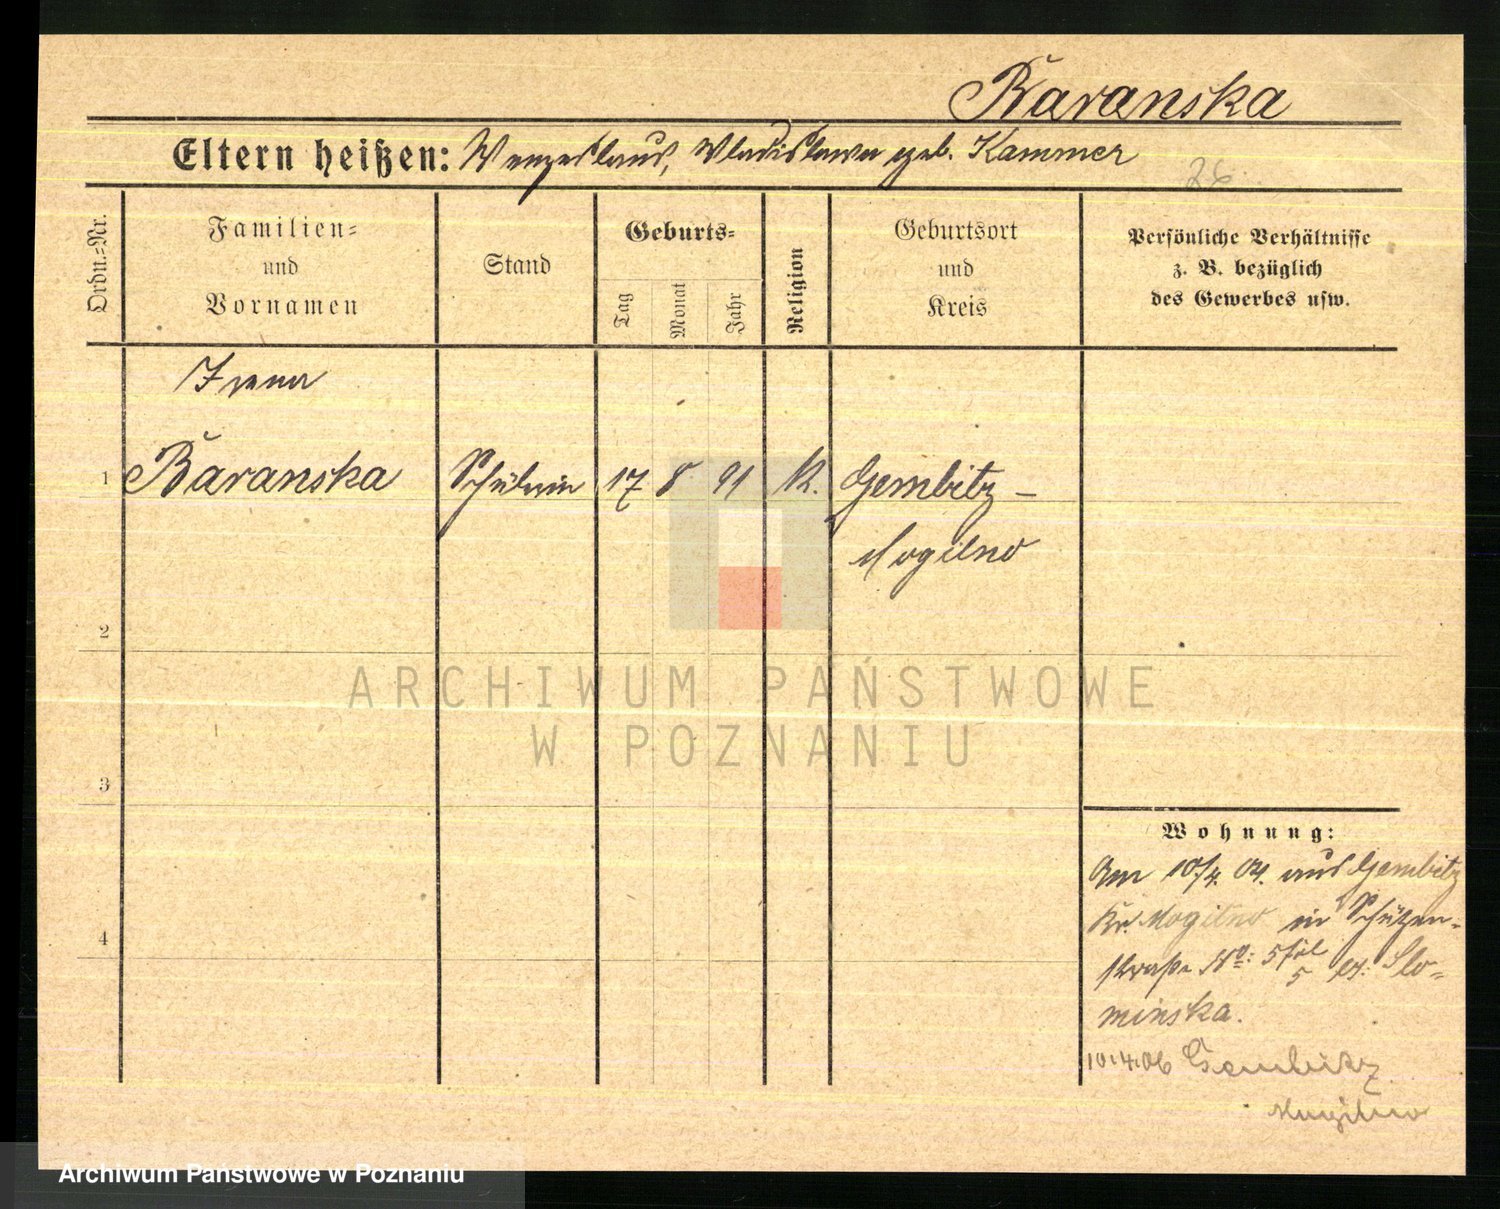 Baranska
Eltern heißen: Wenzeslaus, Wladislawa geb. Kammer
26
Ordn.-Nr.
Familien-
und
Vornamen
Stand
Geburts-
Tag
Monat
Jahr
Religion
Geburtsort
und
Kreis
Persönliche Verhältnisse
z. B. bezüglich
des Gewerbes usw.
Irena
1 Baranska Schülerin 17 8 91 K. Gembitz –
Mogilno
2
ARCHIWUM PAŃSTWOWE
W POZNANIU
3
Wohnung:
Am 10/4. 04. aus Gembitz
Kr. Mogilno in Schützen-
straße No: 5 
5 bei Slo-
minska.
4
10.4.06 Gembitz
Mogilno
Archiwum Państwowe w Poznaniu